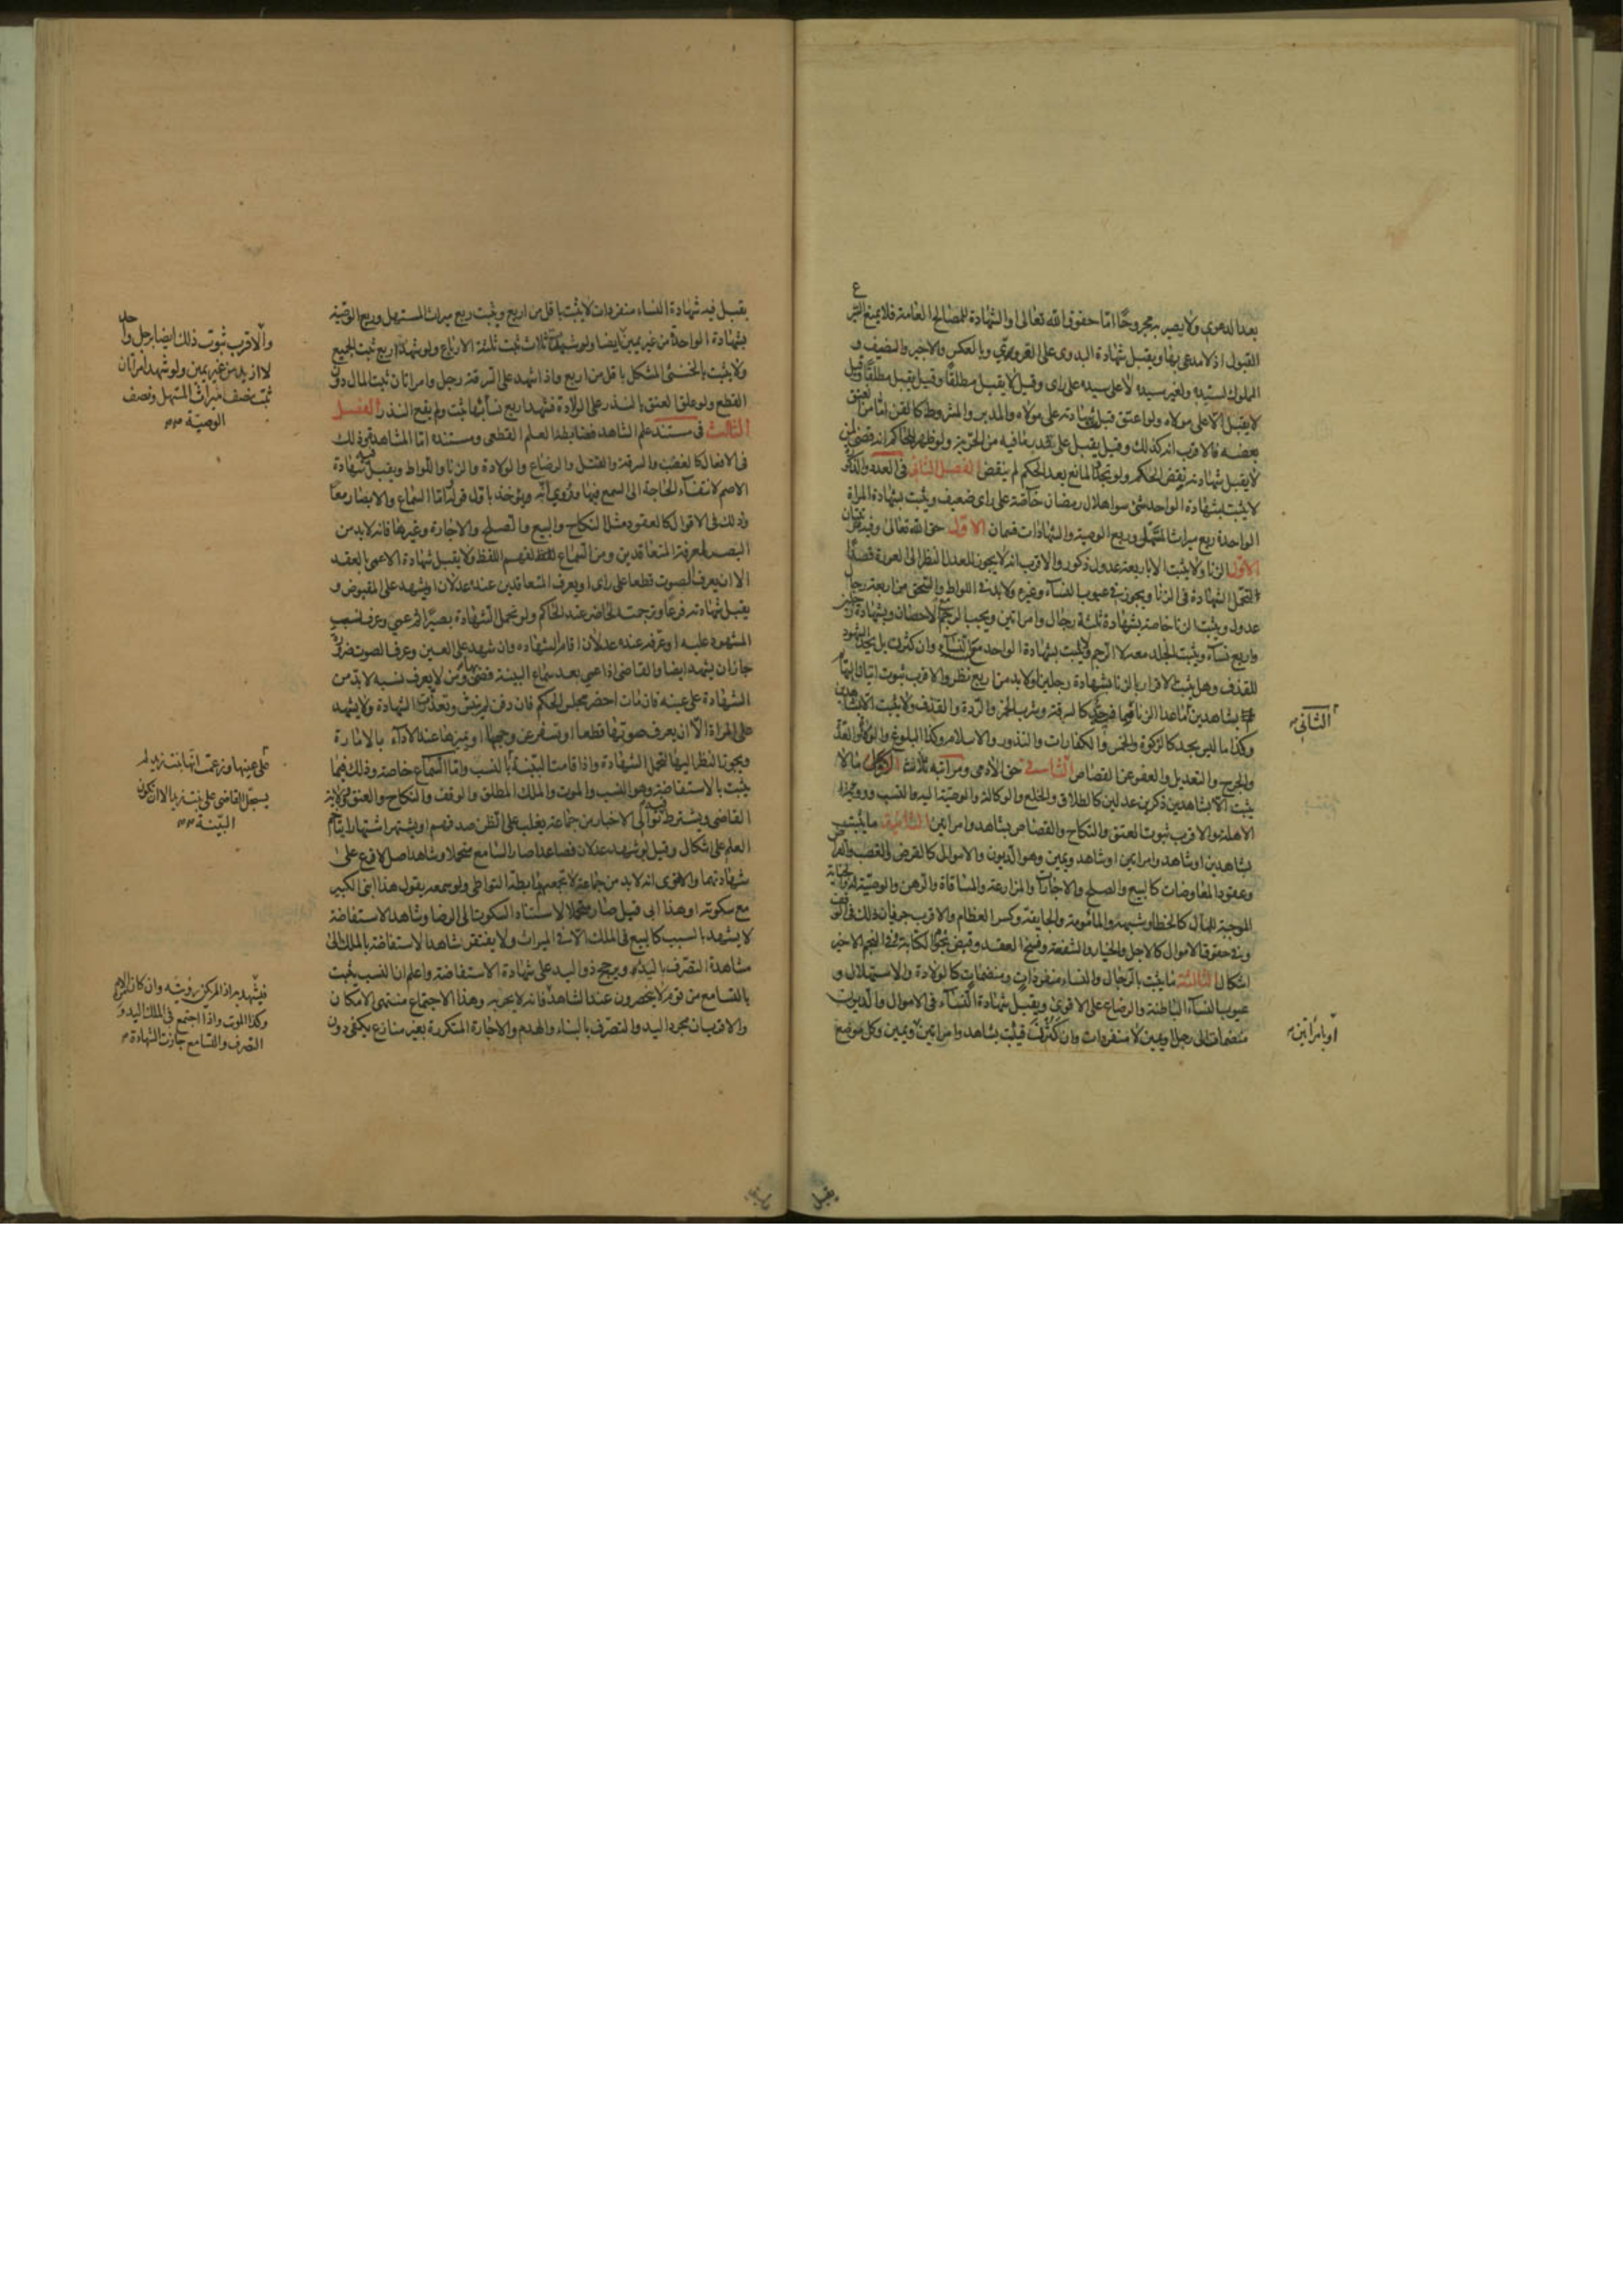 بعد الدعوى ولا يصير به مجروحا اما حقوق الله تعالى او الشهادة للمصالح العامة فلا يمنع التبرع
القبول اذ لا مدعى بها ويقبل شهادة البدوى على القروى وبالعكس والاجير والضيف و
المملوك لسيده ولغير سيده لا على سيده على راى وقيل لا يقبل مطلقا وقيل يقبل مطلقا وقيل
لا يقبل الا على مولاه ولو اعتق قبل شهادته على مولاه والمدبر والمشروط كالقن اما من اعتق
بعضه فالاقرب انه كذلك وقيل يقبل على قدر ما فيه من الحرية ولو ظهر للحاكم انه قضى بمن
لا يقبل شهادته نقض الحكم ولو تجدد المانع بعد الحكم لم ينقض الفصل الثانى فى العدد والذكورة
لا يثبت بشهادة الواحد شئ سوا هلال رمضان خاصة على راى ضعيف ويثبت بشهادة المراة
الواحدة ربع ميراث المستهل وربع الوصية والشهادات قسمان الاول حق الله تعالى وفيه مرتبتان
الاول الزنا ولا يثبت الا باربعة عدول ذكور والاقرب انه لا يجوز للعدل النظر الى العورة قصدا
لتحمل الشهادة فى الزنا ويجوز فى عيوب النساء وغيره ولابد فى اللواط والسحق من اربعة رجال
عدول ويثبت الزنا خاصة بشهادة ثلثة رجال وامراتين ويجب الرجم مع الاحصان وبشهادة رجلين
واربع نساء ويثبت الجلد معه لا الرجم ولا يثبت بشهادة الواحد مع النساء وان كثرن بل يحد الشهود
للقذف وهل يثبت الاقرار بالزنا بشهادة رجلين او لابد من اربع نظر والاقرب ثبوت اتيان البهايم
بشاهدين اما عدا الزنا فيما فيه حد كالسرقة وشرب الخمر والردة والقذف ولا يثبت الا بشاهدين
وكذا ما ليس بحد كالزكوة والخمس والكفارات والنذور والاسلام وكذا البلوغ والولاء والعدة
والجرح والتعديل والعفو عن القصاص الثانى حق الادمى ومراتبه ثلاث الاولى ما لا
يثبت الا بشاهدين ذكرين عدلين كالطلاق والخلع والوكالة والوصية اليه والنسب ورؤية
الاهلة والاقرب ثبوت العتق والنكاح والقصاص بشاهد وامراتين الثانية ما يثبت
بشاهدين او شاهد وامراتين او شاهد ويمين وهو الديون والاموال كالقرض والغصب والقراض
وعقود المعاوضات كالبيع والصلح والاجارات والمزارعة والمساقاة والرهن والوصية له والجناية
الموجبة للمال كالخطا وشبهه والمامومة والجايفة وكسر العظام والاقرب جريان ذلك فى الوقف
وفى حقوق الاموال كالاجل والخيار والشفعة وفسخ العقد وقبض نجوم الكتابة وفى النجم الاخير
اشكال الثالثة ما يثبت بالرجال والنساء منفردات ومنضمات كالولادة والاستهلال و
عيوب النساء الباطنة والرضاع على الاقوى ويقبل شهادة النساء فى الاموال والديون
منضمات الى رجل او يمين لا منفردات وان كثرن فيثبت بشاهد وامراتين ويمين وكل موضع
الثانى
او بامراتين
يقبل
يقبل فيه شهادة النساء منفردات لا يثبت باقل من اربع ويثبت ربع ميراث المستهل وربع الوصية
بشهادة الواحدة من غير يمين ايضا ولو شهد ثلاث ثبت ثلثة الارباع ولو شهد اربع ثبت الجميع
ولا يثبت بالخنثى المشكل باقل من اربع واذا شهد على السرقة رجل وامراتان ثبت المال دون
القطع ولو علق العتق بالنذر على الولادة فشهد اربع نساء بها ثبت ولم يقع النذر الفصل
الثالث فى مستند علم الشاهد فضابطه العلم القطعى ومستنده اما المشاهدة وذلك
فى الافعال كالغصب والسرقة والقتل والرضاع والولادة والزنا واللواط ويقبل فيه شهادة
الاصم لانتفاء الحاجة الى السمع فيها وروى انه يؤخذ باول قوله اما السماع والابصار معا
وذلك فى الاقوال كالعقود مثل النكاح والبيع والصلح والاجارة وغيرها فانه لابد من
البصر لمعرفة المتعاقدين ومن السماع لفهم اللفظ ولا يقبل شهادة الاعمى بالعقد
الا ان يعرف الصوت قطعا على راى او يعرف المتعاقدين عنده عدلان او يشهد على المقبوض و
يقبل شهادته فرعا وترجمته للحاضر عند الحاكم ولو تحمل الشهادة بصيرا ثم عمى وعرف نسب
المشهود عليه او عرفه عنده عدلان اقام الشهادة وان شهد على العين وعرف الصوت ضرورة
جاز ان يشهد ايضا والقاضى اذا عمى بعد سماع البينة قضى بها ومن لا يعرف نسبه لابد من
الشهادة على عينه فان مات احضر مجلس الحكم فان دفن لم ينبش وتعذرت الشهادة ولا يشهد
على المراة الا ان يعرف صوتها قطعا او تسفر عن وجهها ويميزها عند الاداء بالاشارة
ويجوز النظر اليها لتحمل الشهادة واذا قامت البينة بالنسب واما السماع خاصة وذلك فيما
يثبت بالاستفاضة وهو النسب والموت والملك المطلق والوقف والنكاح والعتق وولاية
القاضى ويشترط توالى الاخبار من جماعة يغلب على الظن صدقهم او يشتهر اشتهارا يتاخم
العلم على اشكال وقيل لو شهد عدلان فصاعدا صار السامع متحملا وشاهد اصل لا فرع على
شهادتهما والاقوى انه لابد من جماعة لا يجمعهم رابطة التواطى ولو سمعه يقول هذا ابنى الكبير
مع سكوته او هذا ابى قيل صار متحملا لاستناد السكوت الى الرضا وشاهد الاستفاضة
لا يشهد بالسبب كالبيع فى الملك الا فى الميراث ولا يفتقر شاهد الاستفاضة بالملك الى
مشاهدة التصرف باليد ويرجح ذو اليد على شهادة الاستفاضة واعلم ان النسب يثبت
بالتسامع من قوم لا ينحصرون عند الشاهد فانه لا يحتج به وهذا الاجتماع منتهى الامكان
والاقرب ان مجرد اليد والتصرف بالبناء والهدم والاجارة المتكررة بغير منازع يكفى دون
والاقرب ثبوت ذلك ايضا برجل واحد
لا ازيد من غير يمين ولو شهد امراتان
ثبت نصف ميراث المستهل ونصف
الوصية
على عينها وزعمت انها بنت زيد لم
يسجل القاضى على بنت زيد الا ان تكون
البينة
فيشهد به اذ المدرك رؤيته وان كان الام
وكذا الموت واذا اجتمع فى الملك اليد و
التصرف والتسامع جازت الشهادة